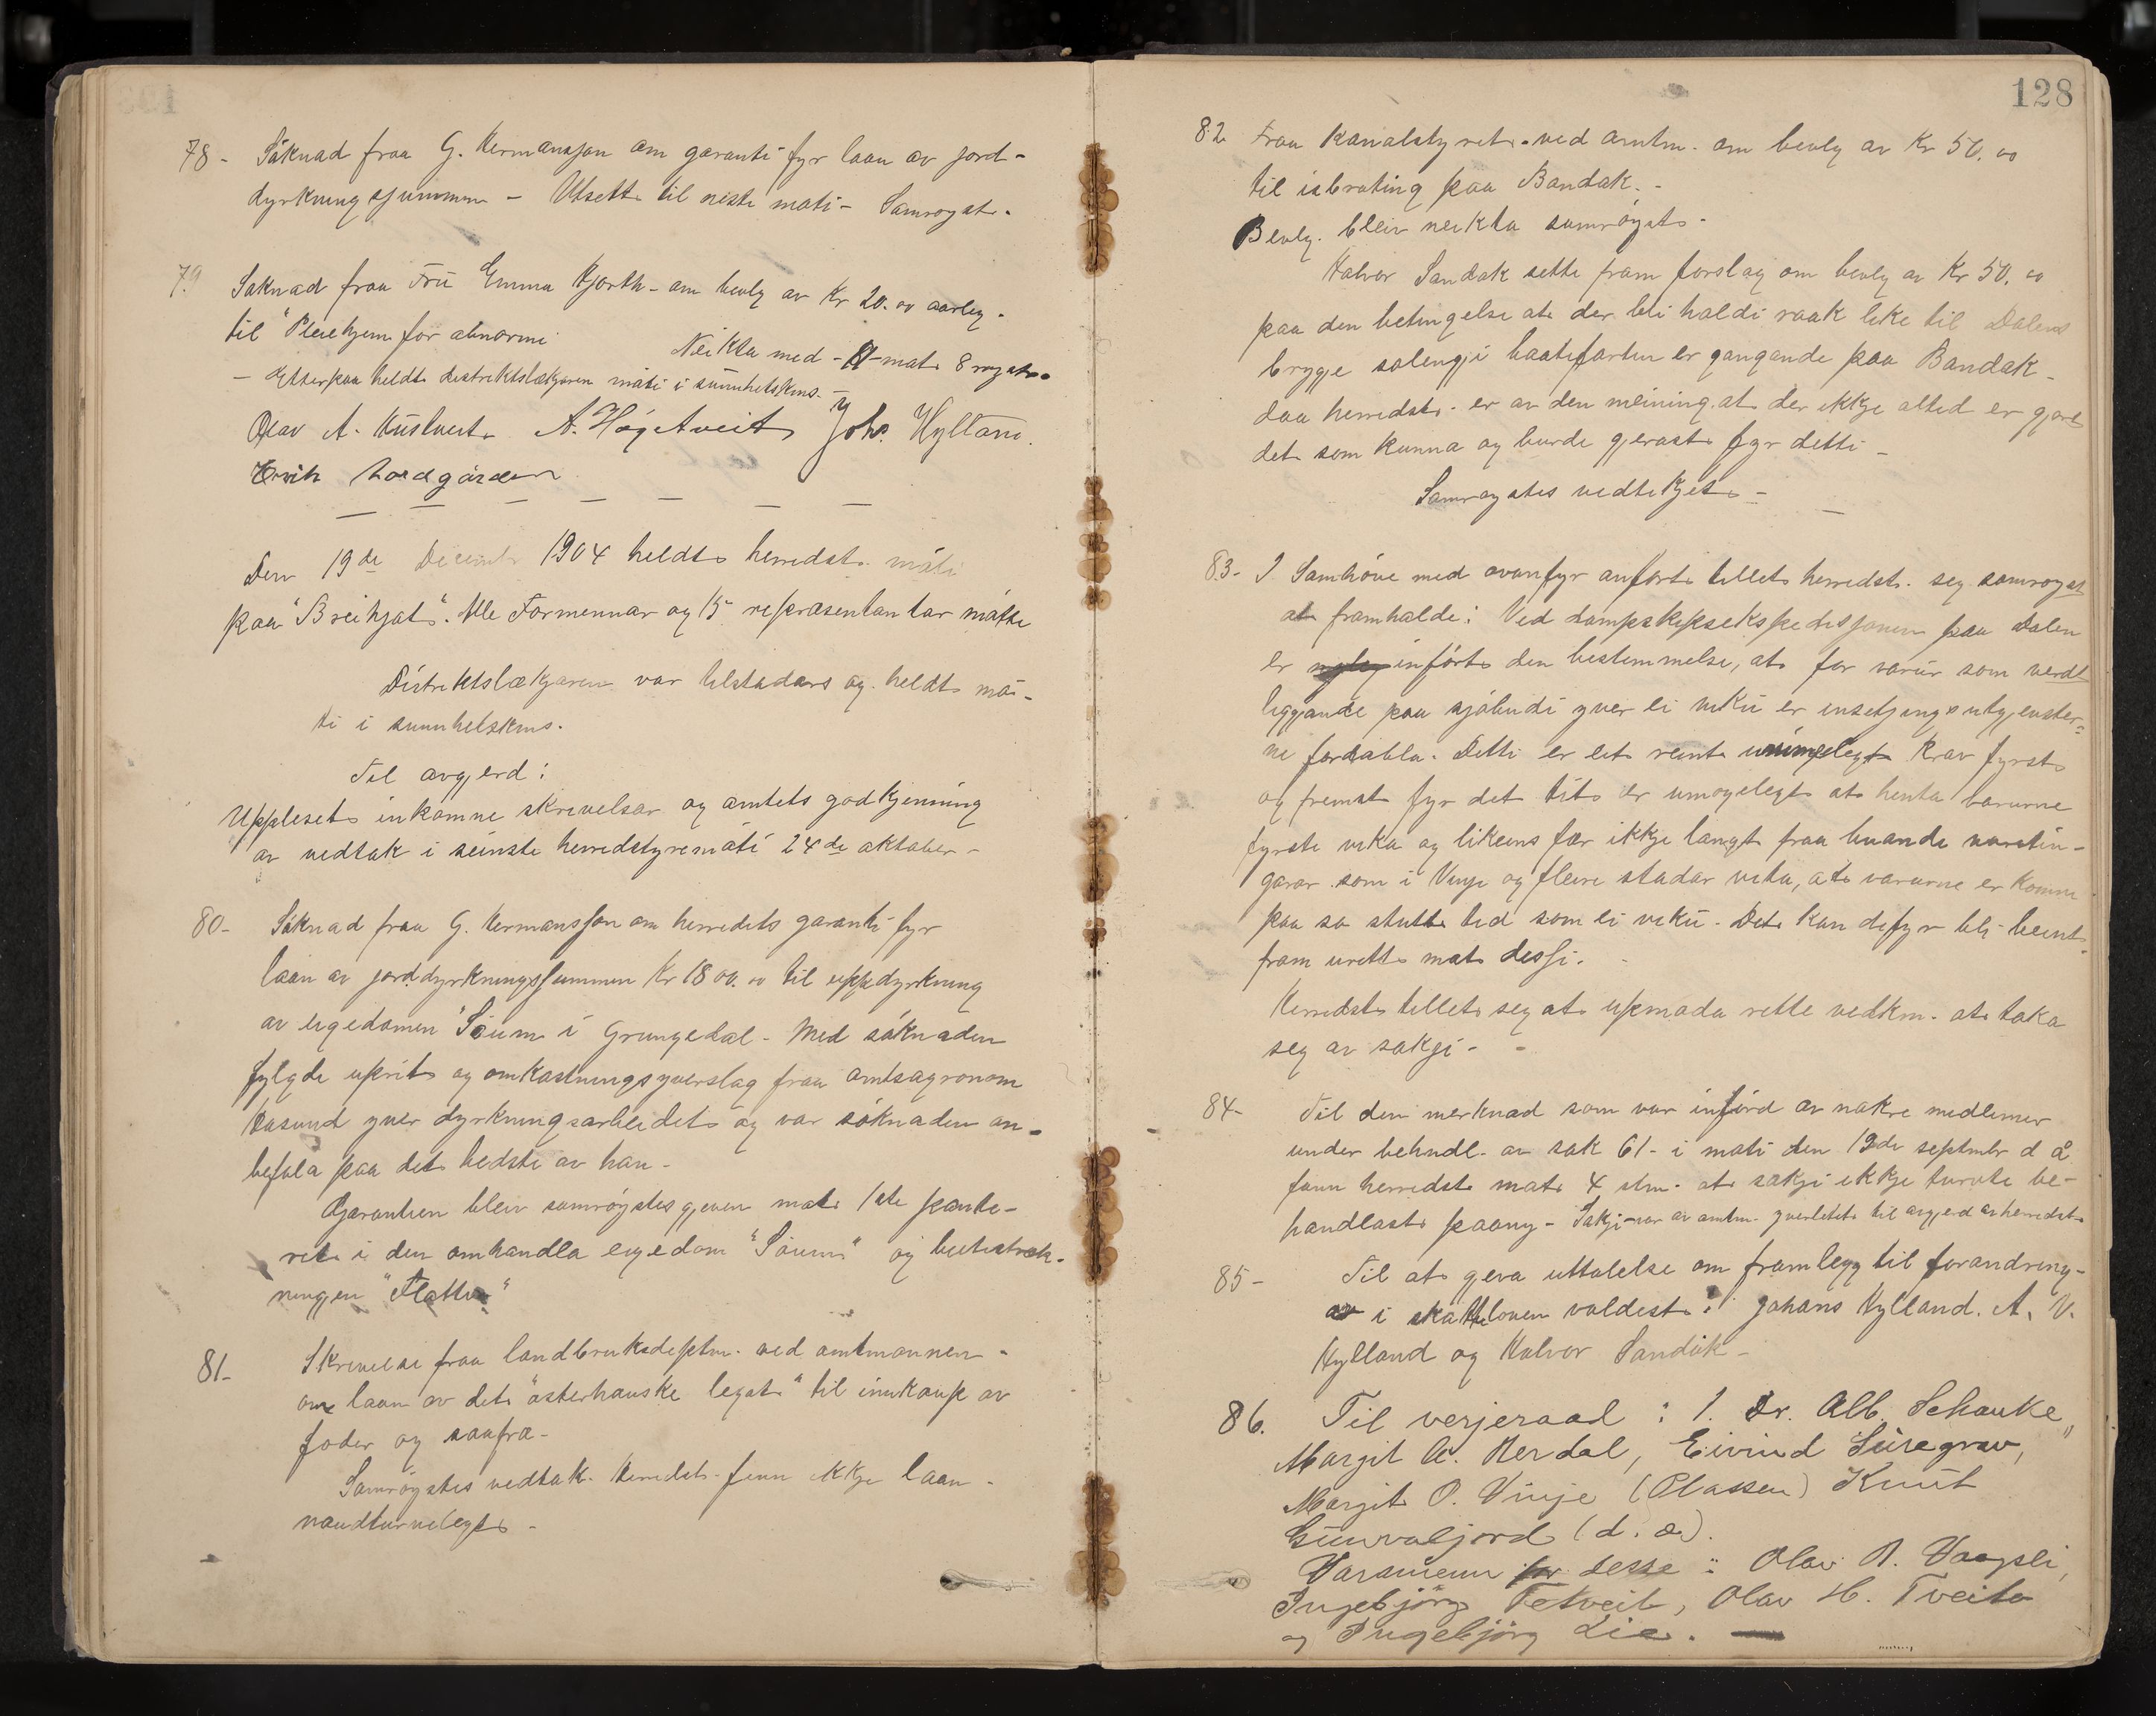 78- Söknad fraa G. Hermansson om garanti fyr laan av jord-
dyrkningssummen - Utsett til neste möti - Samrøystes.
79 Söknad fraa Frü Emma Hjorth - om bevlg av Kr 20.00 aarleg.
til "Pleiehjem for abnorme
Neikta med -11- mot 8 røyster.
- Etterpaa heldt distriktslækjaren möti i sunnhetskms. -
Olav A. Huslveit A. Høgetveit Johs. Hylland.
Eirik Nordgården
Den 19de Decembr 1904 heldt herredst. möti
paa "Breihjat". Alle Formennar og 15 repræsentantar møtte
Distriktslækjaren var tilstadars og heldt mö-
ti i sunnhetskms.
Til avgjerd:
Upplesets inkomne skrivelsar og amtets godkjenning
av vedtak i seinste herredstyremöti 24de oktober -
80- Söknad fraa G. Hermansson om herredets garanti fyr
laan av jorddyrkningssummen Kr 1800.00 til uppdyrkning
av eigedomen "Söum i Grungedal - Med söknaden
fylgde uprit og omkostningsyverslag fraa amtsagronom
Hasund yver dyrkningsarbeidet og var söknaden an-
befala paa det bedste av han -
Garantien bleiv samröystes gjeven mot 1ste pante-
rett i den omhandla eigedom "Söum" og beitestrek-
ningjen
81- Skrivelse fraa landbruksdeptm. ved amtmannen -
om laan av det "østerhauske legat" til innkaup av
foder og saafra -
Samröystes vedtak. Herredst. finn ikkje laan -
naudturvelegt -
128
82 Fraa Kanalstyret - ved amtm. om bevlg av Kr 50.00
til isbryting paa Bandak. -
Bevlg. bleiv neikta samröystes -
Halvor Sandok sette fram forslag om bevlg av Kr 50.00
paa den betingelse at der bli haldi raak like til Dalens
brygge solengji baatefarten er gangande paa Bandak -
daa herredst. er av den meining at der ikkje altid er gjort
det som kunna og burde gjerast fyr detti -
Samröystes vedtikjet -
83- I Samhöve med ovanfyr anfört tillet herredst. seg samröyst
at framhalde: Ved dampskipsekspedisjonen paa Dalen
er infört den bestemmelse, at for varur som verdt
liggjande paa sjöbudi yver ei viku er insetjingsutgjenster-
ne fordobla. Detti er eit reint urimelegt krav fyrst
og fremst fyr det tit er umogelegt at henta varurne
fyrste vika og likeens for ikkje langt fraa buande varetin-
garar som i Vinje og fleire stadar vita, at varurne er komne
paa so stutte tid som ei viku. Det kan difyr bli beint
fram urett mot dessi.
Herredst tillet seg at upmoda rette vedkm. at taka
seg av sakji - -
84- Til den merknad som var införd av nokre medlemer
under behndl. av sak 61- i möti den 19de septmbr d å
fann herredst mot 4 stm. at sakji ikkje turvte be-
handlast paany - Sakji var av amtm. yverletet til avgjerd av herredst.
85- Til at geva uttalelse om framlegg til forandring-
ar i skatteloven valdest: Johans Hylland. A. V.
Hylland og Halvor Sandok -
86. Til verjeraad: 1. Dr. Alb. Schanke,
Margit A. Herdal, Eivind
Margit O. Vinje (Plassen) Knut
Gunvaljord (d. æ).
Varamenn for desse: Olav A. Vaagsli,
Ingebjörg Tetveit, Olav H. Tveito
og Ingebjörg Lie.